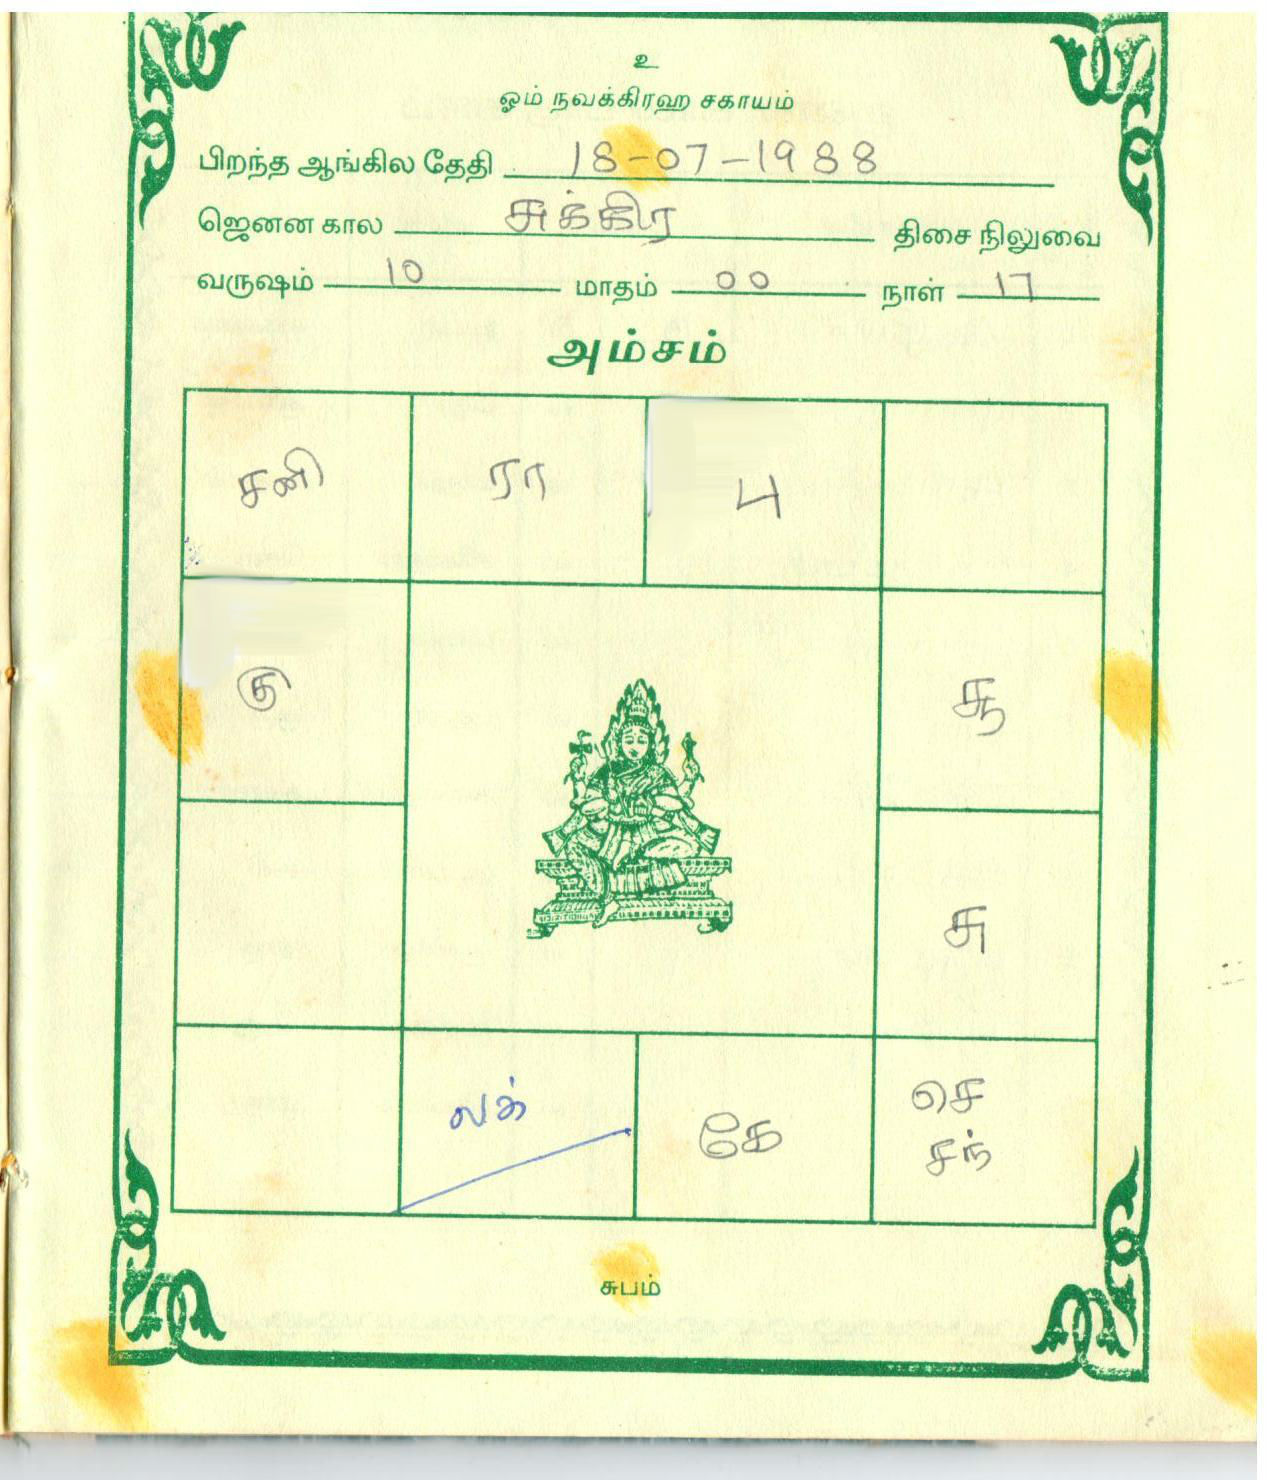 உ
ஓம் நவக்கிரஹ சகாயம்
பிறந்த ஆங்கில தேதி 18-07-1988
ஜெனன கால சுக்கிர திசை நிலுவை
வருஷம் 10 மாதம் 00 நாள் 17
அம்சம்
சனி ரா பு
கு சூ
சு
லக் கே செ
சந்
சுபம்